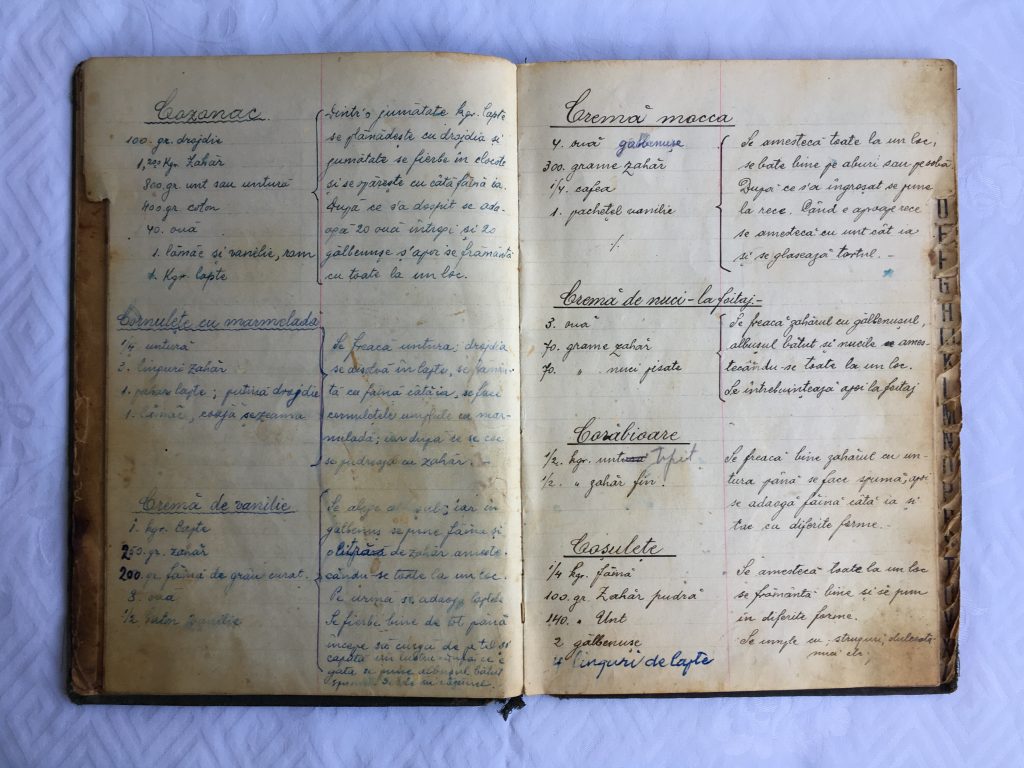 Cozonac
100. gr. drojdie
1,200 Kgr. Zahăr
300. gr. unt sau untură
400. gr. coton
40. ouă
1. lămâe și vanilie, rom
1. Kgr. lapte
Dintr'o jumătate kgr. lapte
se plămădește cu drojdia și
jumătate se fierbe în clocote
și se opărește cu câtă făină ia.
După ce s'a dospit se ada-
ogă 20 ouă întregi și 20
gălbenușe ș'apoi se frământă
cu toate la un loc.
Cornulețe cu marmeladă
1/4 untură
3. linguri zahăr
1. pahar lapte; puțină drojdie
1. lămâe, coaja și zeama
Se freacă untura; drojdia
se disolvă în lapte, se frămân-
tă cu făină câtă ia, se fac
cornulețele umplute cu mar-
muladă; iar după ce se coc
se pudrează cu zahăr. -
Cremă de vanilie
1. kgr. lapte
250. gr. zahăr
200. gr. făină de grâu curat.
3. ouă
1/2 baton vanilie
Se alege albușul; iar în
gălbenuș se pune făina și
de zahăr ameste-
cându-se toate la un loc.
Pe urmă se adaogă laptele
Se fierbe bine de tot până
începe să curgă de pe tel să
capete un lustru după ce e
gata se pune albușul bătut
spumă
Cremă mocca
4. ouă gălbenușe
300. grame zahăr
1/4. cafea
1. pachețel vanilie
·/.
Se amestecă toate la un loc,
se bate bine pe aburi sau pe sobă
După ce s'a îngroșat se pune
la rece. Când e aproape rece
se amestecă cu unt cât ia
și se glasează tortul. -
Cremă de nuci - la foitaj -
3. ouă
70. grame zahăr
70. " nuci pisate
Se freacă zahărul cu gălbenușul,
albușul bătut și nucile ames-
tecându-se toate la un loc.
Se întrebuințează apoi la foitaj
Corăbioare
1/2. kgr. untură topit
1/2. " zahăr fin.
Se freacă bine zahărul cu un-
tura până se face spumă, apoi
se adaogă făină câtă ia și
tac cu diferite forme. -
Cosulețe
1/4 kgr. făină
100. gr. Zahăr pudră
140. " Unt
2 gălbenușe
4 linguri de lapte
Se amestecă toate la un loc
se frământă bine și se pun
în diferite forme.
Se umple cu struguri, dulceață
nuci etc.
D
E
F
G
H
I
J
K
L
M
N
O
P
R
S
T
U
V